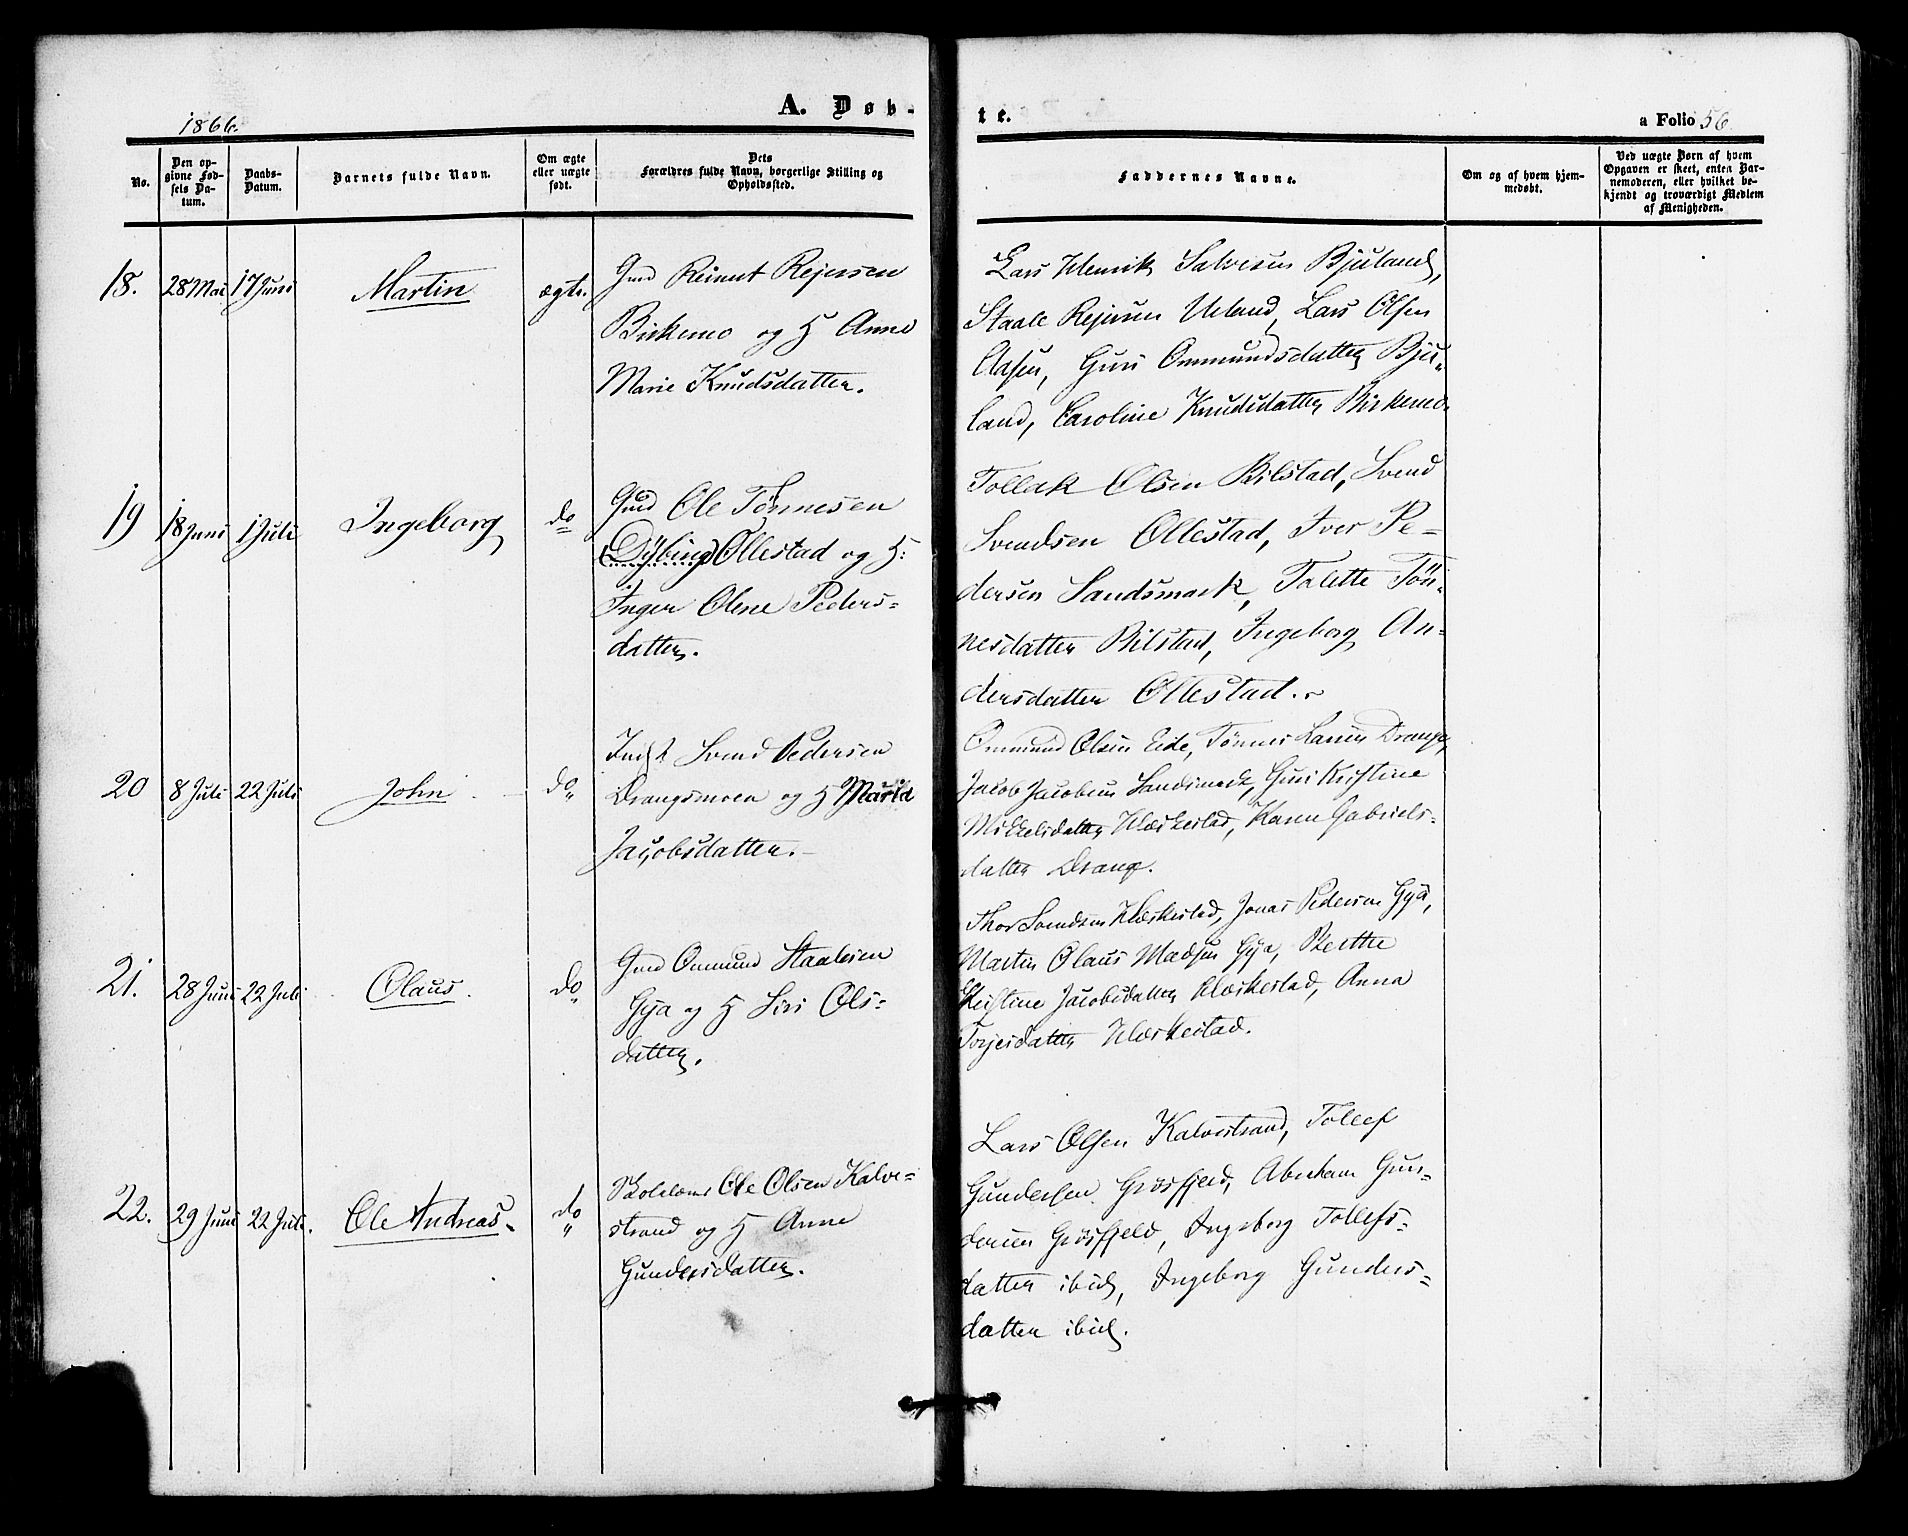 1866.
A. Døb-
te.
a Folio 56
No.
Den op-
givne Fød-
sels Da-
tum.
Daabs-
Datum.
Barnets fulde Navn.
Om ægte
eller uægte
født.
Dets
Forældres fulde Navn, borgerlige Stilling og
Opholdssted.
Faddernes Navne.
Om og af hvem hjem-
medøbt.
Ved uægte Børn af hvem
Opgaven er skeet, enten Bar-
nemoderen, eller hvilket be-
kjendt og troværdigt Medlem
af Menigheden.
18. 28 Mai 17 Juni Martin ægte.
Gmd Reinert Rejersen
Birkemo og H Anne
Marie Knudsdatter.
Lars Henrik Salvesen Bjuland,
Staale Rejersen Ueland, Lars Olsen
Aasen, Guri Ommundsdatter Bju-
land, Caroline Knudsdatter Birkemo
19 18 Juni 1 Juli Ingeborg do
Gmd Ole Tønnesen
(Dybing) Ollestad og H:
Inger Olene Peders-
datter.
Tollak Olsen Bilstad, Svend
Svendsen Ollestad, Iver Pe-
dersen Sandsmark, Talette Tøn-
nesdatter Bilstad, Ingeborg An-
dersdatter Ollestad.
20 8 Juli 22 Juli John do
Inds Svend Pedersen
Drangsmoen og H Maria
Jacobsdatter.
Ommund Olsen Eide, Tønnes Larsen Drange,
Jacob Jacobsen Sandsmark, Guri Kristine
Mikkelsdatter Hæskestad, Karen Gabriels-
datter Drange.
21. 28 Juni 22 Juli Olaus do
Gmd Ommund Staalesen
Gya og H Siri Ols-
datter.
Thor Svendsen Hæskestad, Jonas Pedersen Gya,
Martin Olaus Madsen Gya, Berthe
Kristine Jacobsdatter Hæskestad, Anna
Torjesdatter Hæskestad.
22. 29 Juni 22 Juli. Ole Andreas. do
Skolelærer Ole Olsen Kalve-
strand og H Anne
Gundersdatter.
Lars Olsen Kalvestrand, Tollef
Gundersen Grøsfjeld, Abraham Gun-
dersen Grøsfjeld, Ingeborg Tollefs-
datter ibid, Ingeborg Gunders-
datter ibid.